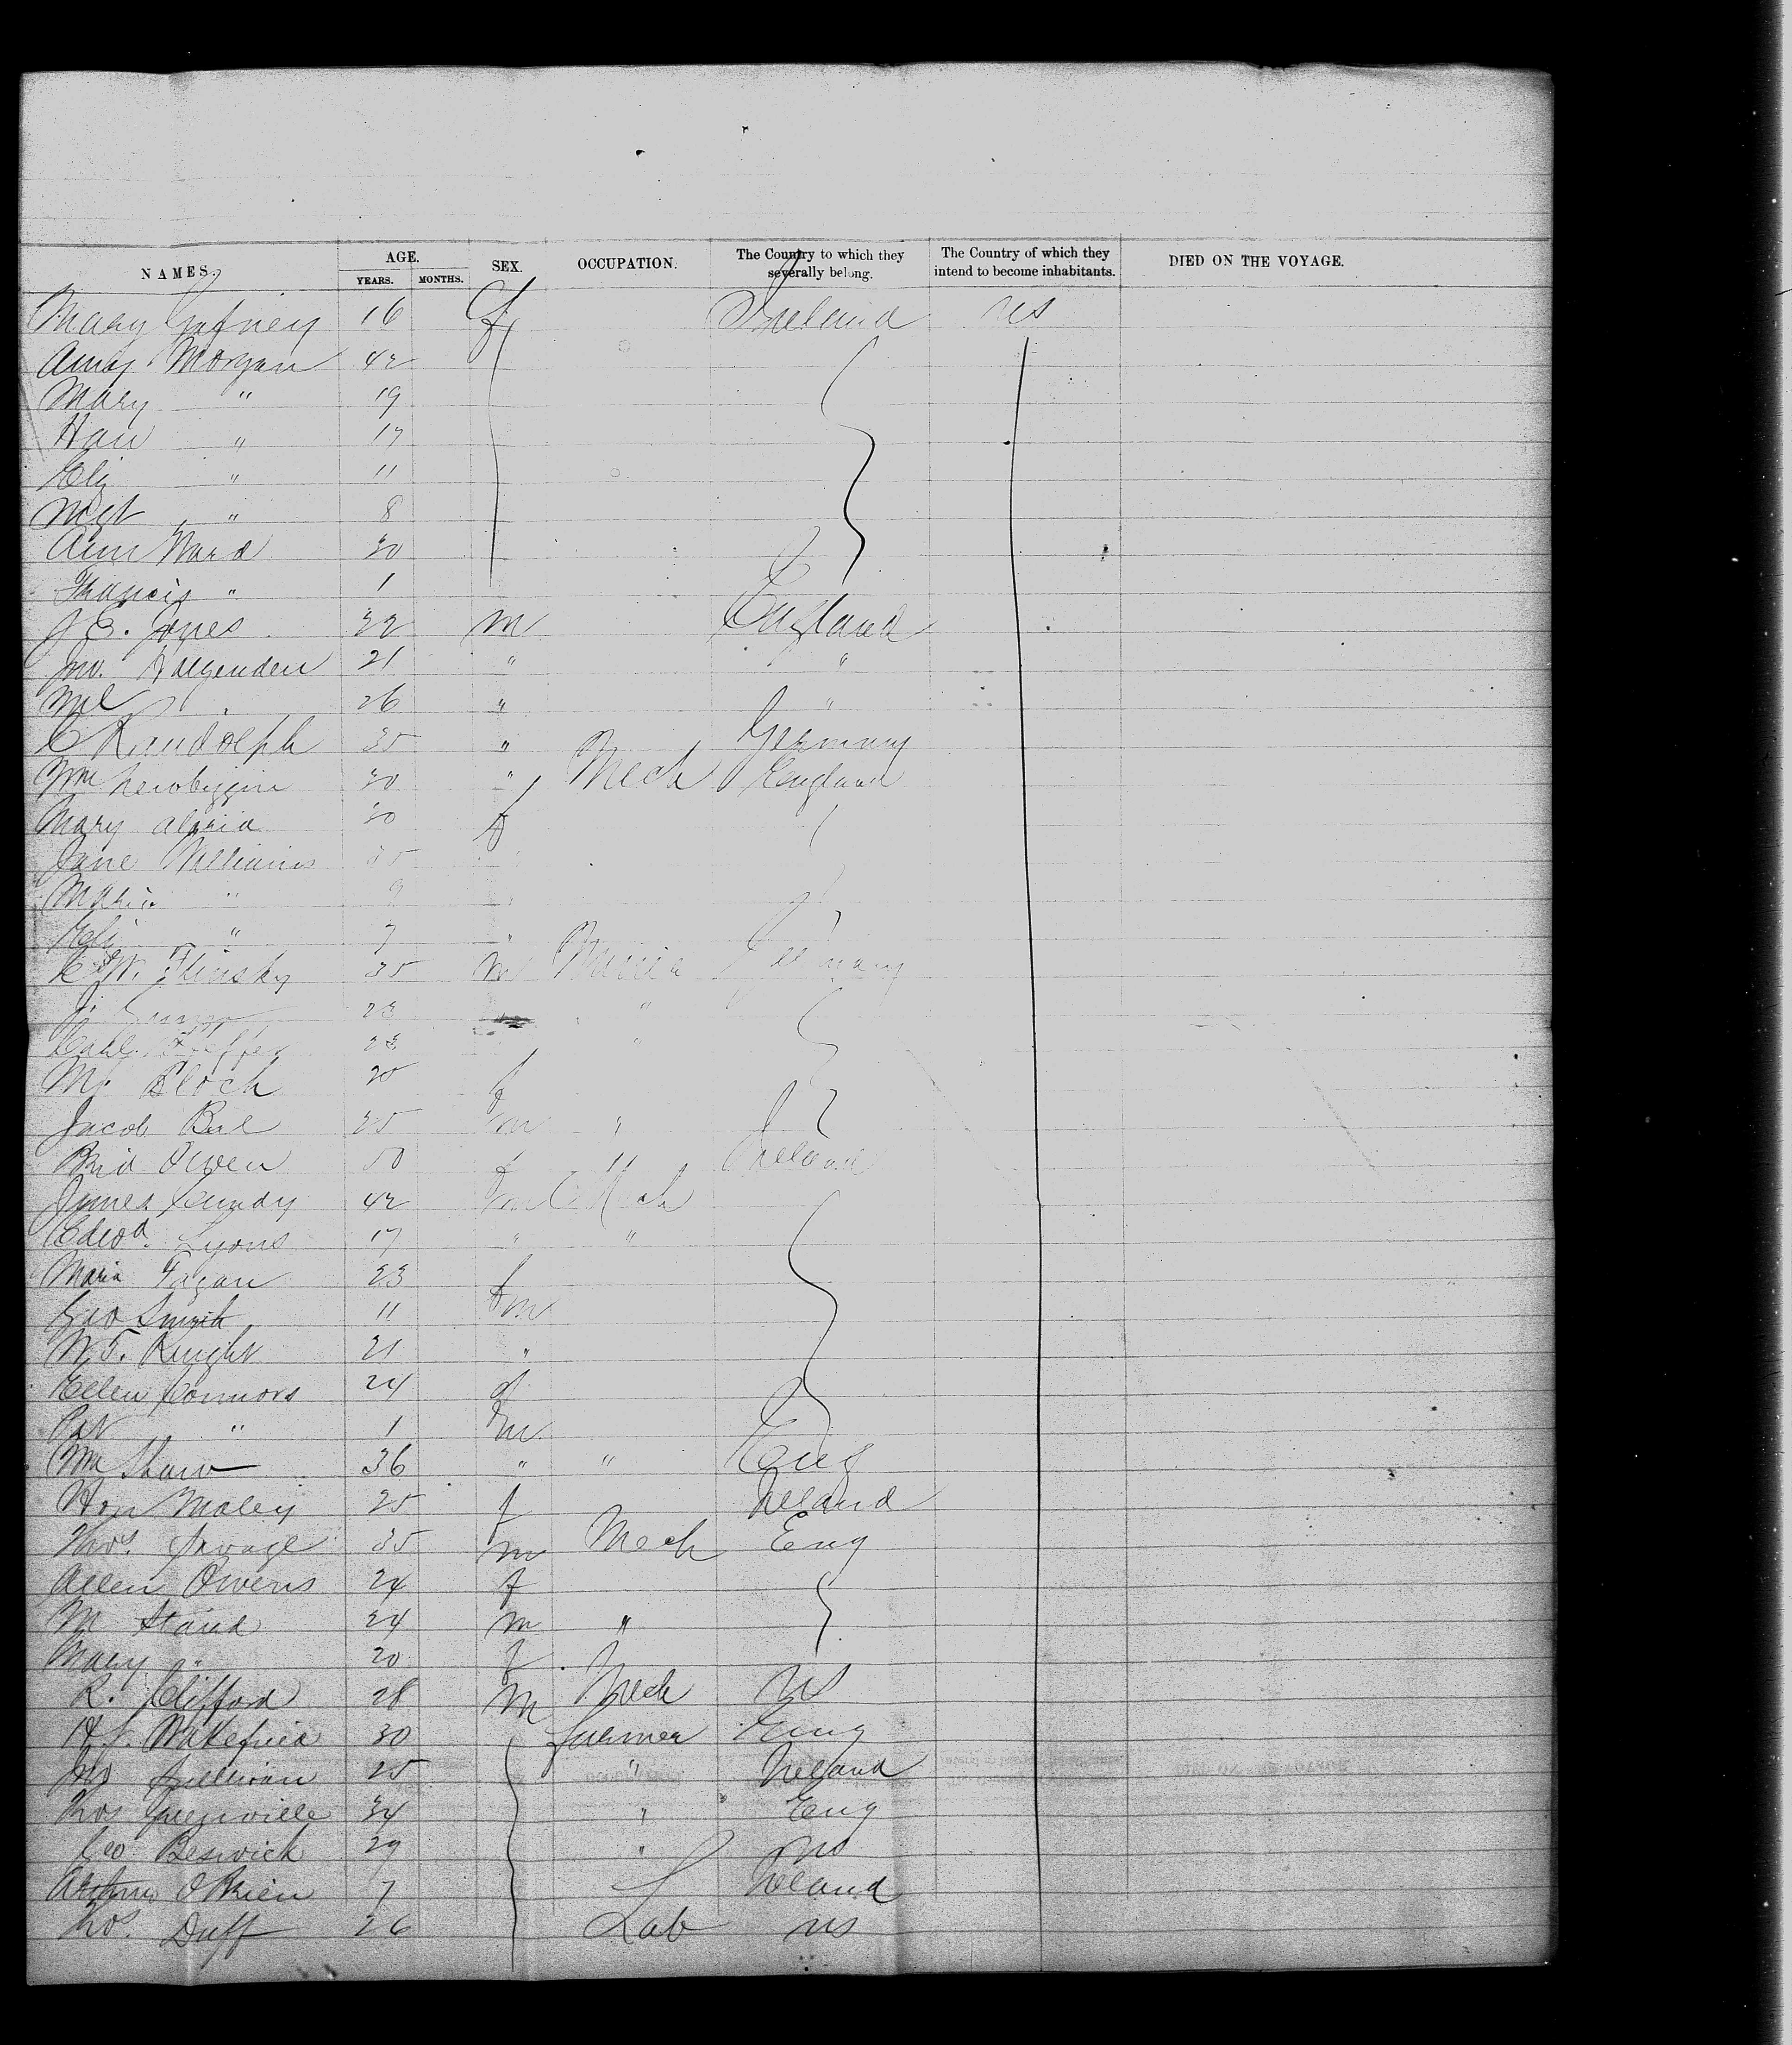 NAMES. AGE. SEX. OCCUPATION. The Country to which they severally belong. The Country of which they intend to become inhabitants. DIED ON THE VOYAGE.
YEARS. MONTHS.
Mary Gafney 16 f Ireland US
Morgan 42
Mary " 19
Han " 17
Eliz " 11
Mgt " 8
Ann Ward 30
Francis " 1
J E. Jones 32 m England
Jno. 21 " "
26 " "
C Randolph 35 " Germany
Wm Newbiggin 30 " Mech England
Mary 30 f
Jane Williams 35
Maria " 9
Eliz " 7 "
E W. 35 m Germany
J. 23 "
Carl 23 "
Block 20 f
Jacob 25 m "
Brid Owen 50 f Ireland
James Cundy 42 m Mech
Edwd. Lyons 17 " "
Maria Fagan 23 f
Geo Smyth 11 m
W T. Knight 21 "
Ellen Connors 24 f
Pat " 1 m
Wm Shaw 36 " " Eng
Hon Maley 25 f Ireland
Thos. Savage 35 m Mech Eng
Allen Owens 24 f
M Stand 24 m "
Mary " 20 f
R. Clifford 28 m Mech US
Wakefield 30 Farmer Eng
Jno Sullivan 25 " Ireland
Thos Greenville 34 " Eng
Geo Beswick 29 " US
O'Brien 7 Ireland
Thos. Duff 26 Lab US